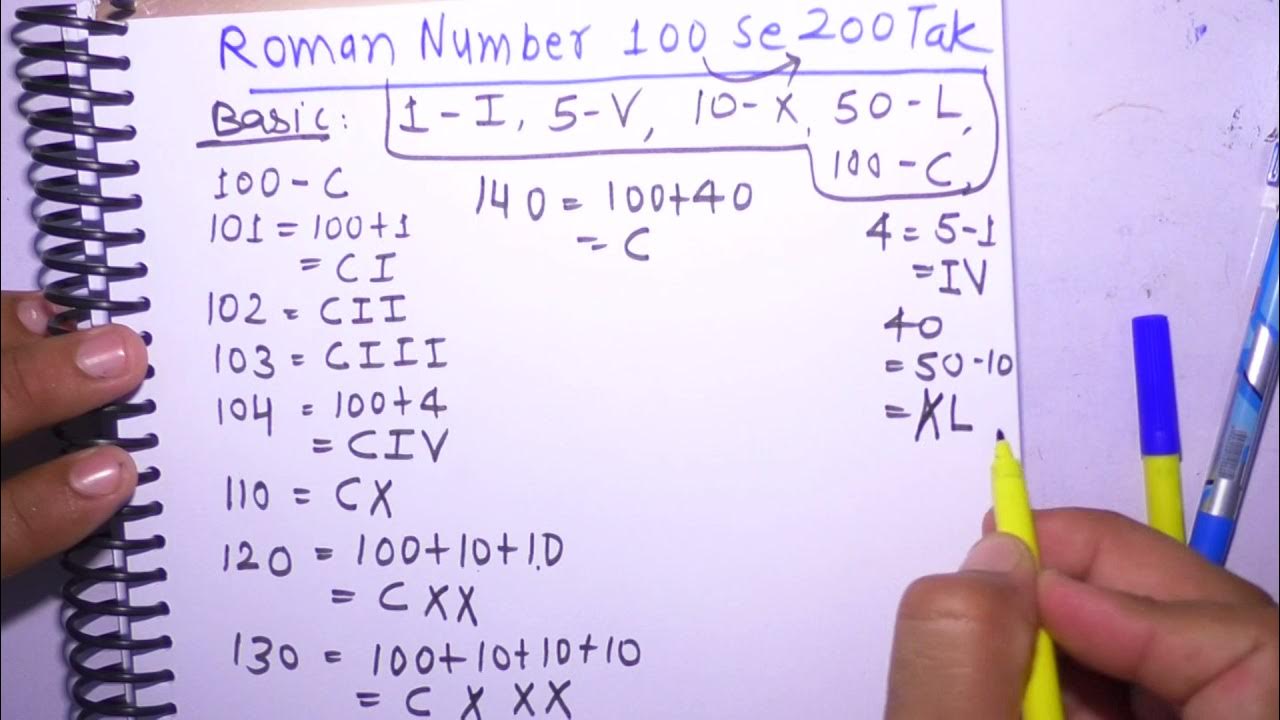 Roman Number 100 se 200 Tak
Basic: 1-I, 5-V, 10-X, 50-L,
100-C,
100-C
101 = 100+1
= CI
102 = CII
103 = CIII
104 = 100+4
= CIV
110 = CX
120 = 100+10+10
= CXX
130 = 100+10+10+10
= CXXX
140 = 100+40
= C
4 = 5-1
= IV
40
= 50-10
= XL